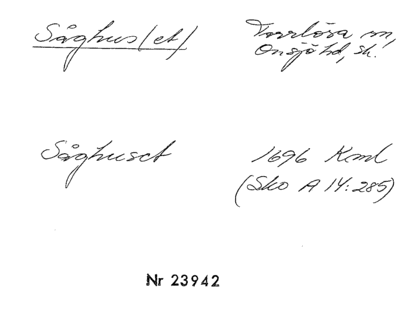 Såghus(et)
Torrlösa sn,
Onsjö hd, Sk.
Såghuset
1696 Kml
(Sko A 14:285)
Nr 23942